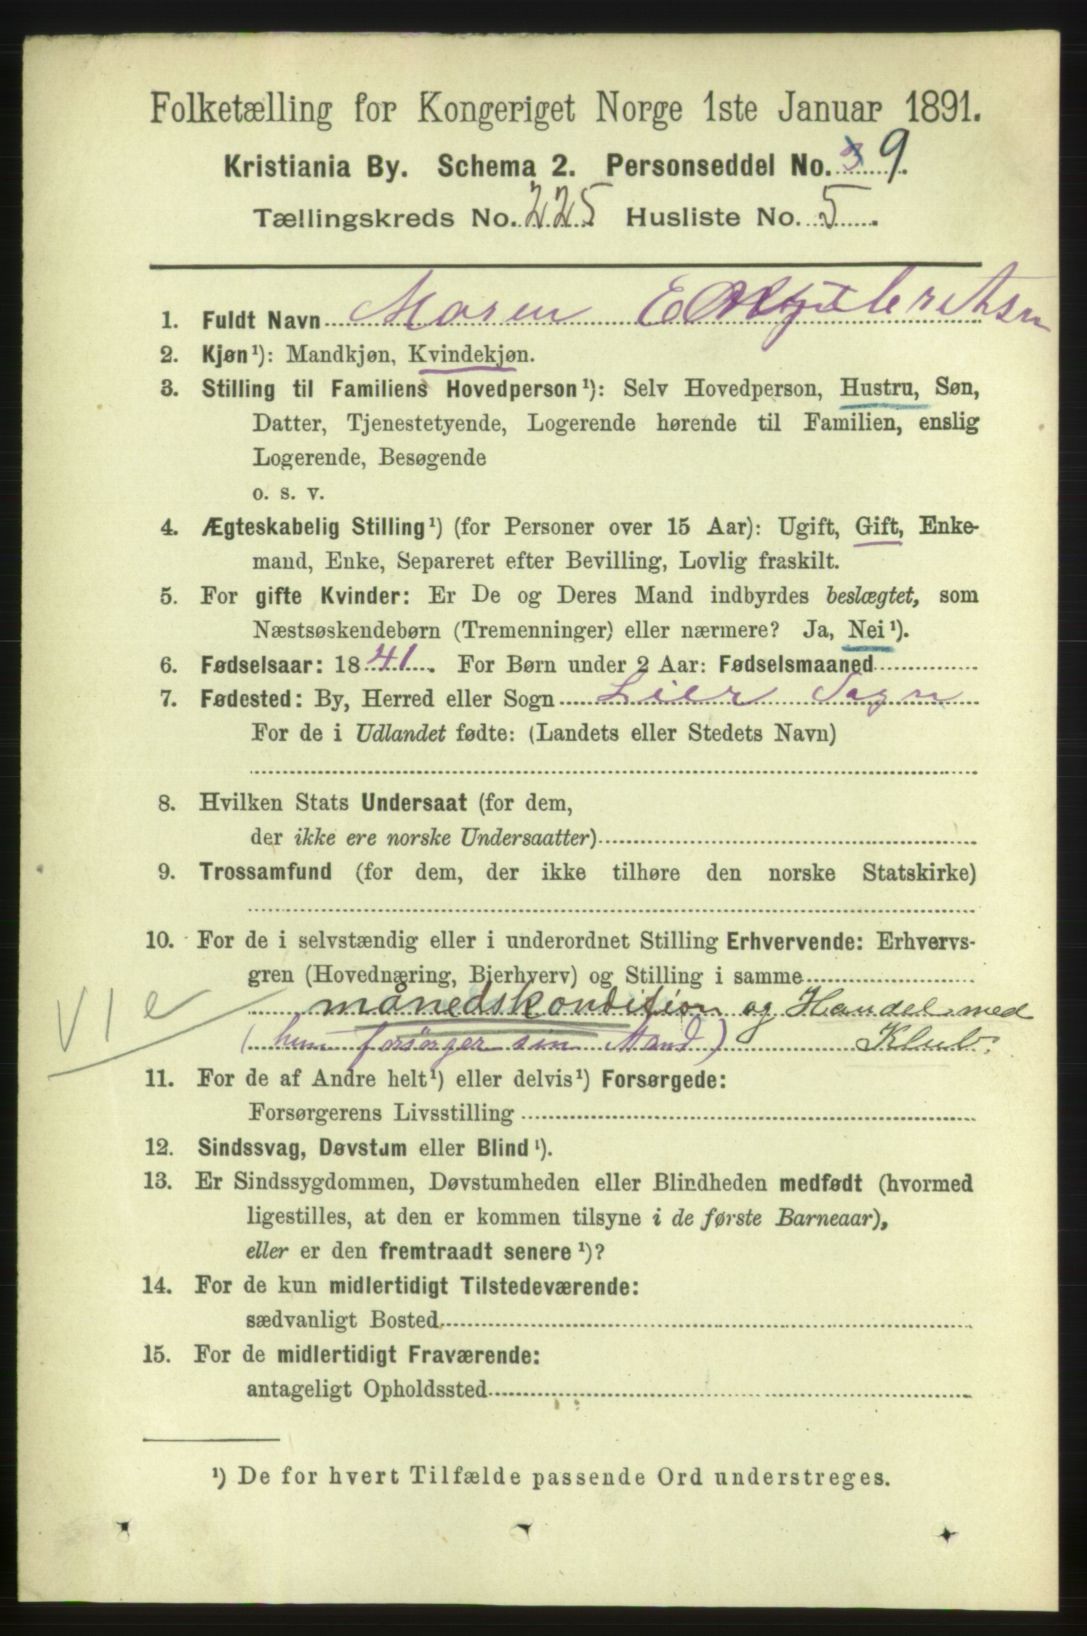 Folketælling for Kongeriget Norge 1ste Januar 1891.
Kristiania By. Schema 2. Personseddel No. 3 9.
Tællingskreds No. 225 Husliste No. 5.
1. Fuldt Navn Maren
2. Kjøn¹): Mandkjøn, Kvindekjøn.
3. Stilling til Familiens Hovedperson¹): Selv Hovedperson, Hustru, Søn,
Datter, Tjenestetyende, Logerende hørende til Familien, enslig
Logerende, Besøgende
o. s. v.
4. Ægteskabelig Stilling¹) (for Personer over 15 Aar): Ugift, Gift, Enke-
mand, Enke, Separeret efter Bevilling, Lovlig fraskilt.
5. For gifte Kvinder: Er De og Deres Mand indbyrdes beslægtet, som
Næstsøskendebørn (Tremenninger) eller nærmere? Ja, Nei¹).
6. Fødselsaar: 1841. For Børn under 2 Aar: Fødselsmaaned
7. Fødested: By, Herred eller Sogn Lier Sogn
For de i Udlandet fødte: (Landets eller Stedets Navn)
8. Hvilken Stats Undersaat (for dem,
der ikke ere norske Undersaatter)
9. Trossamfund (for dem, der ikke tilhøre den norske Statskirke)
10. For de i selvstændig eller i underordnet Stilling Erhvervende: Erhvervs-
gren (Hovednæring, Bierhverv) og Stilling i samme
månedskondition og Handel med
VIe (hun forsørger sin Mand) Klub.
11. For de af Andre helt¹) eller delvis¹) Forsørgede:
Forsørgerens Livsstilling
12. Sindssvag, Døvstum eller Blind¹).
13. Er Sindssygdommen, Døvstumheden eller Blindheden medfødt (hvormed
ligestilles, at den er kommen tilsyne i de første Barneaar),
eller er den fremtraadt senere¹)?
14. For de kun midlertidigt Tilstedeværende:
sædvanligt Bosted
15. For de midlertidigt Fraværende:
antageligt Opholdssted
¹) De for hvert Tilfælde passende Ord understreges.